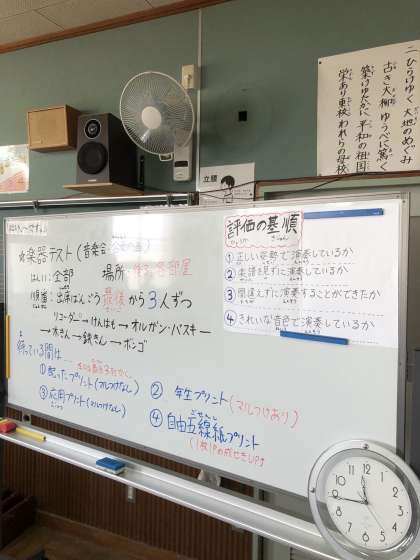 二 ひらけゆく 大地のめぐみ
古き大樹 ゆうべに篤く
築けゆたかに 平和の祖国
栄あり東校 われらの母校
立腰
☆楽器テスト(音楽会
はんい:全部 場所:
順番:出席ばんごう最後から3人ずつ
リコーダー→けんばも→オルガン・バスキー
→木きん→鉄きん→ボンゴ
待っている間は
①配ったプリント(マルつけなし)
② 年生プリント(マルつけあり)
③応用プリント(マルつけなし)
④自由五線紙プリント
(1枚1Pの成せきUP↑
評価の基準
ひょうか きじゅん
①正しい姿勢で演奏しているか
②楽譜を見ずに演奏しているか
③間違えずに演奏することができたか
④きれいな音色で演奏しているか
12
1
2
3
4
5
6
7
8
9
10
11